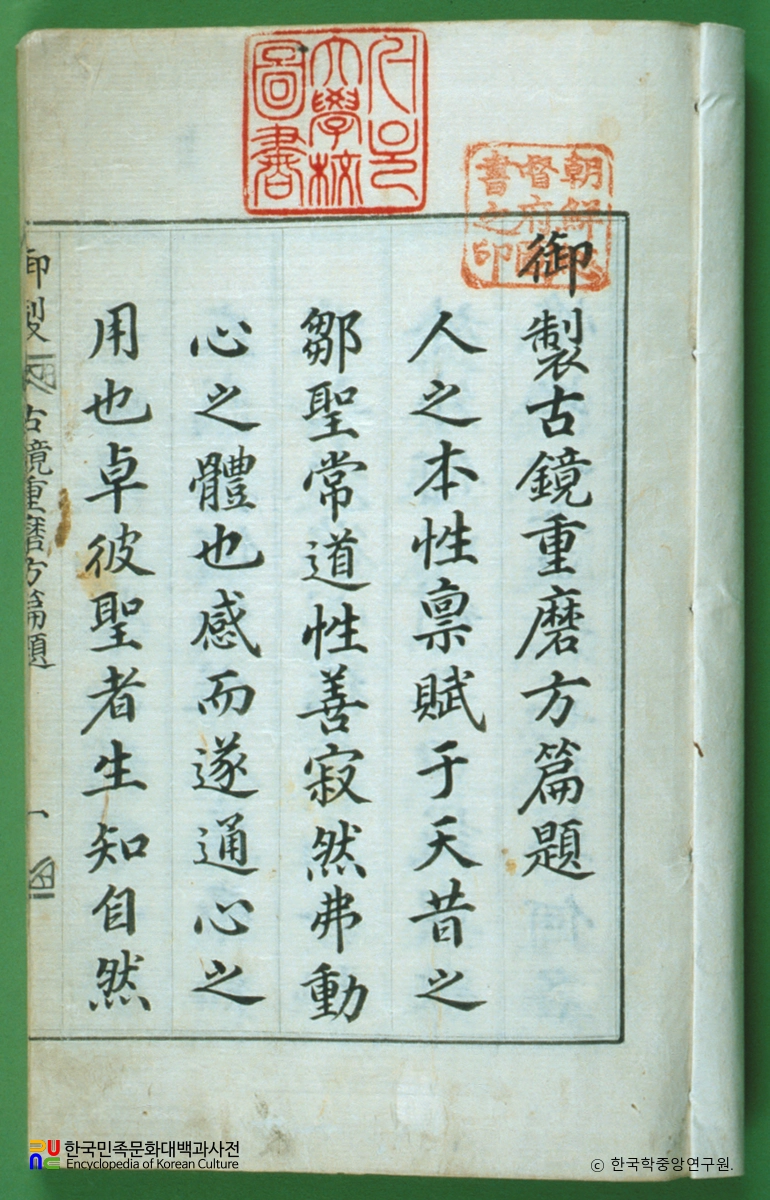 御製古鏡重磨方篇題
人之本性禀賦于天昔之
鄒聖常道性善寂然弗動
心之體也感而遂通心之
用也卓彼聖者生知自然
御製
古鏡重磨方篇題
一
大學校
圖書
朝鮮總
督府圖
書之印
한국민족문화대백과사전
Encyclopedia of Korean Culture
© 한국학중앙연구원.